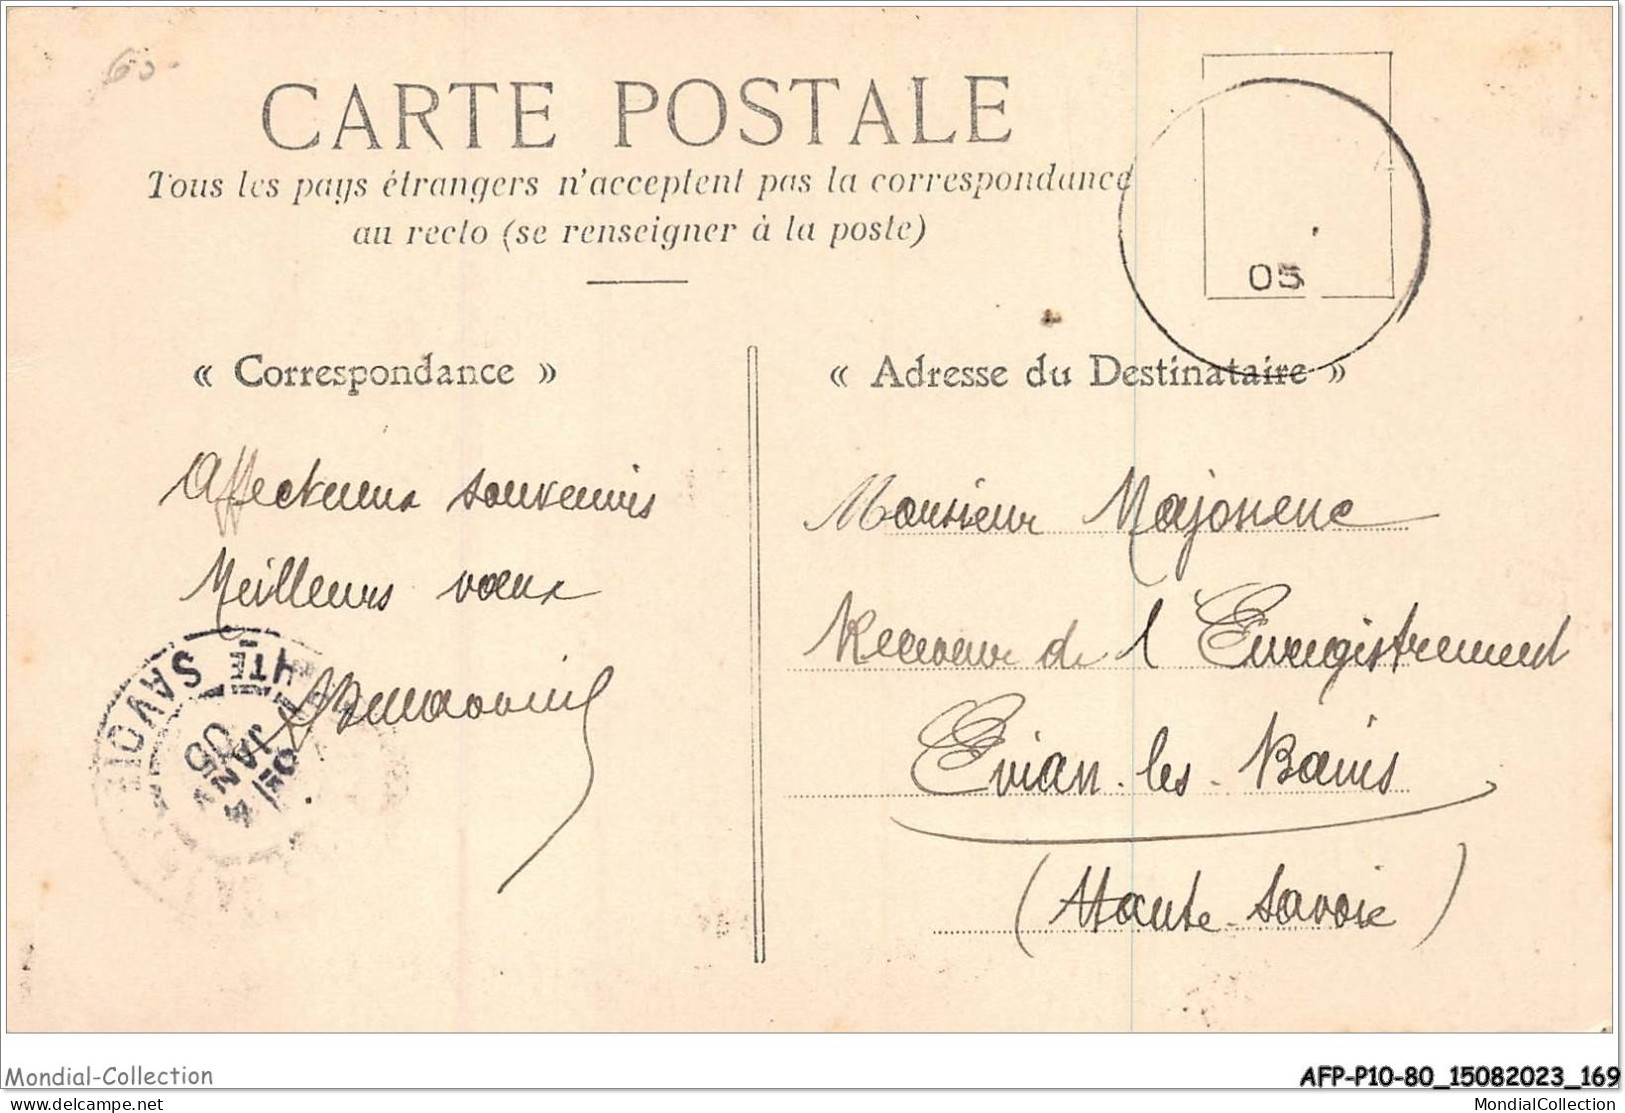 60-
CARTE POSTALE
Tous les pays étrangers n'acceptent pas la correspondance
au recto (se renseigner à la poste)
05
« Correspondance »
Affectueux souvenirs
Meilleurs vœux
« Adresse du Destinataire »
Monsieur
Receveur de l'Enregistrement
Evian-les-Bains
(Haute-Savoie)
HTE SAVOIE
JANV
05
Mondial-Collection
AFP-P10-80_15082023_169
www.delcampe.net
MondialCollection